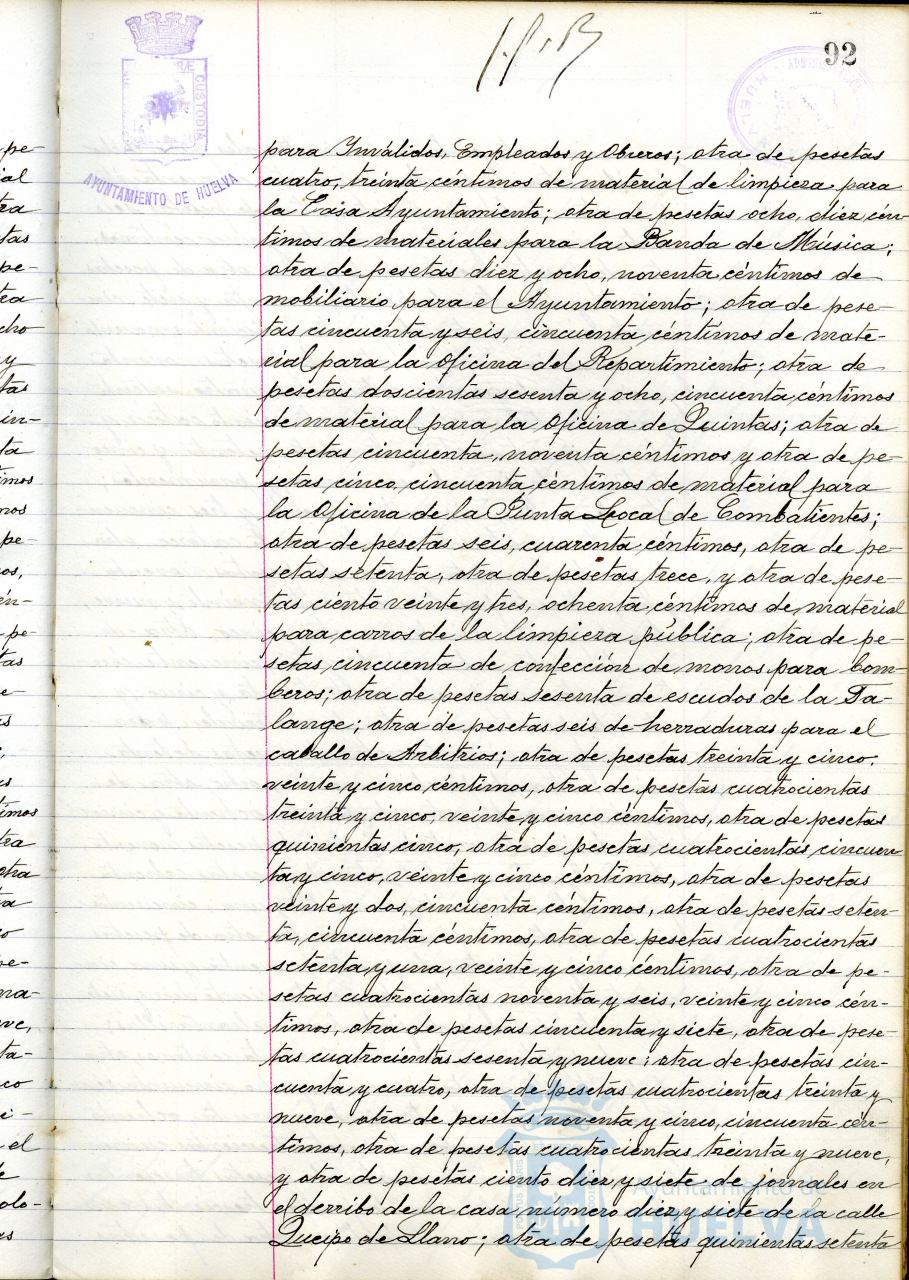 92
CUSTODIA
AYUNTAMIENTO DE HUELVA
para Inválidos, Empleados y Obreros; otra de pesetas
cuatro, treinta céntimos de material de limpieza para
la Casa Ayuntamiento; otra de pesetas ocho, diez cén-
timos de materiales para la Banda de Música;
otra de pesetas diez y ocho, noventa céntimos de
mobiliario para el Ayuntamiento; otra de pese-
tas cincuenta y seis, cincuenta céntimos de mate-
rial para la Oficina del Repartimiento; otra de
pesetas doscientas sesenta y ocho, cincuenta céntimos
de material para la Oficina de Quintas; otra de
pesetas cincuenta, noventa céntimos y otra de pe-
setas cinco, cincuenta céntimos de material para
la Oficina de la Junta Local de Combatientes;
otra de pesetas seis, cuarenta céntimos, otra de pe-
setas setenta, otra de pesetas trece, y otra de pese-
tas ciento veinte y tres, ochenta céntimos de material
para carros de la limpieza pública; otra de pe-
setas cincuenta de confección de monos para bom-
beros; otra de pesetas sesenta de escudos de la Fa-
lange; otra de pesetas seis de herraduras para el
caballo de Arbitrios; otra de pesetas treinta y cinco,
veinte y cinco céntimos, otra de pesetas cuatrocientas
treinta y cinco, veinte y cinco céntimos, otra de pesetas
quinientas cinco, otra de pesetas cuatrocientas cincuen-
ta y cinco, veinte y cinco céntimos, otra de pesetas
veinte y dos, cincuenta céntimos, otra de pesetas seten-
ta, cincuenta céntimos, otra de pesetas cuatrocientas
setenta y una, veinte y cinco céntimos, otra de pe-
setas cuatrocientas noventa y seis, veinte y cinco cén-
timos, otra de pesetas cincuenta y siete, otra de pese-
tas cuatrocientas sesenta y nueve; otra de pesetas cin-
cuenta y cuatro, otra de pesetas cuatrocientas treinta y
nueve, otra de pesetas noventa y cinco, cincuenta cén-
timos, otra de pesetas cuatrocientas treinta y nueve,
y otra de pesetas ciento diez y siete de jornales en
el derribo de la casa número diez y siete de la calle
Queipo de Llano; otra de pesetas quinientas setenta
Ayuntamiento de
HUELVA